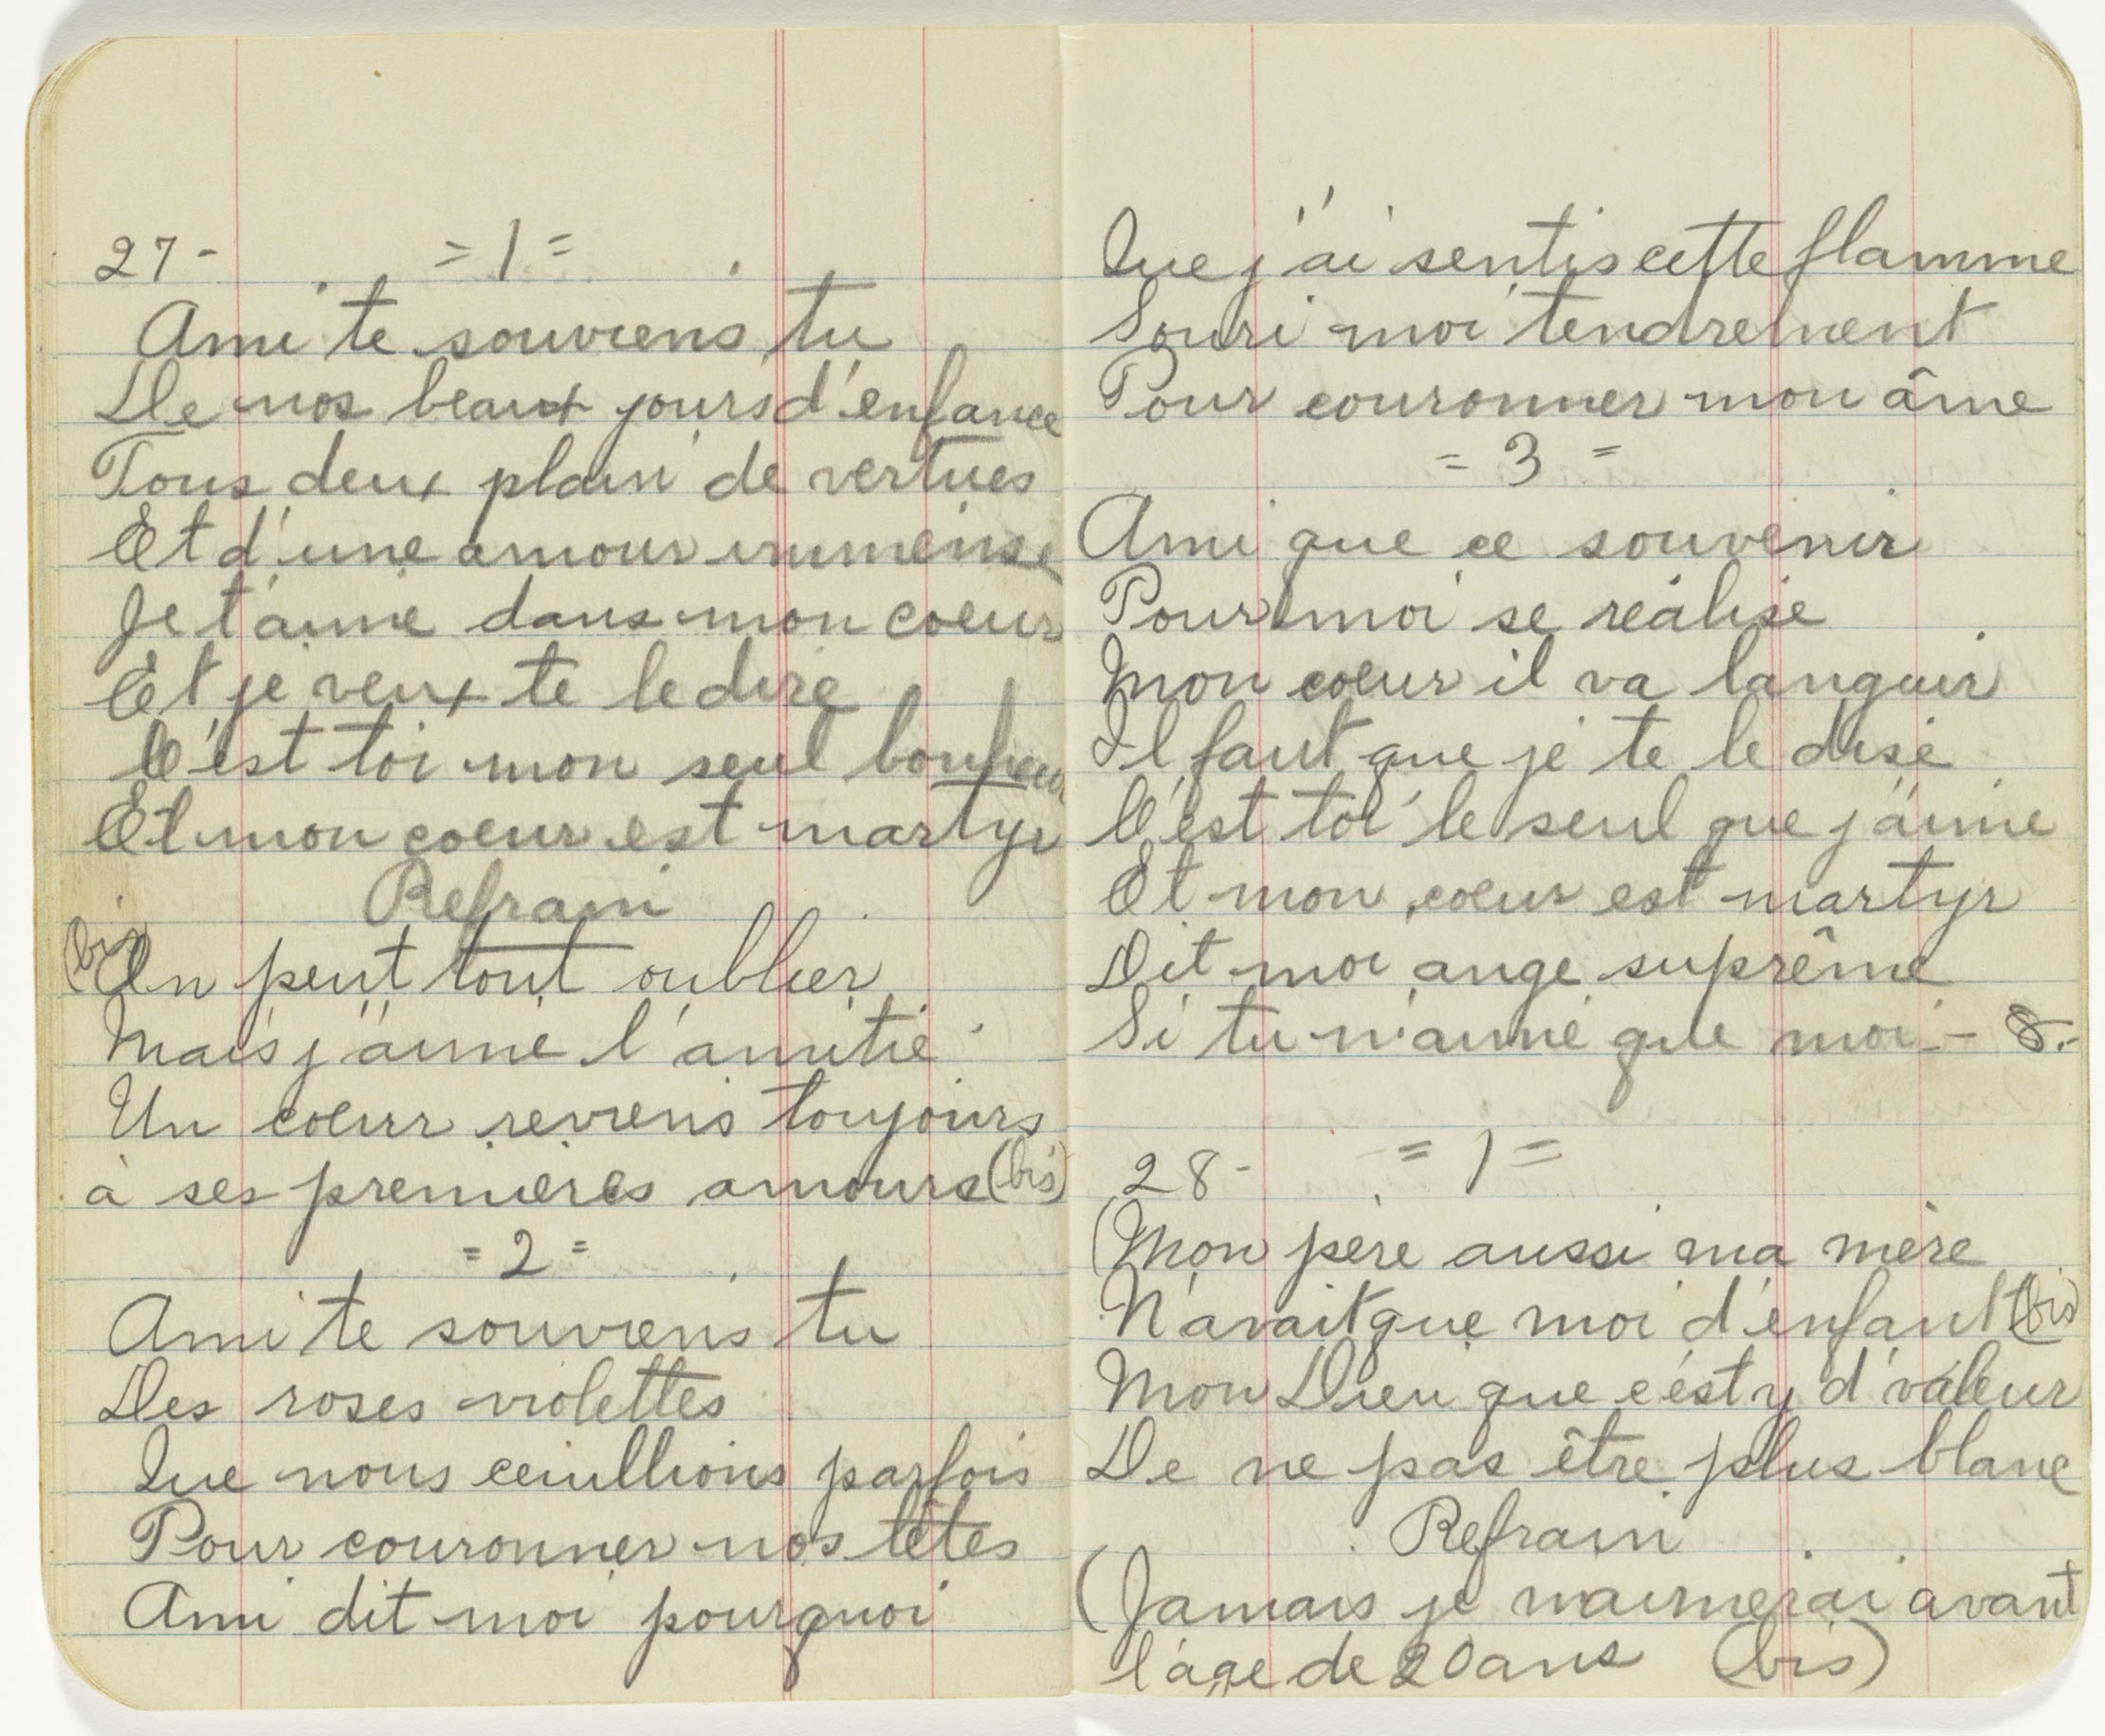 27- = 1 =
Ami te souviens tu
De nos beaux jours d'enfance
Tous deux plain de vertues
Et d'une amour immense
Je t'aime dans mon coeur
Et je veux te le dire
C'est toi mon seul bonheur
Et mon coeur est martyr
Refrain
(bis On peut tout oublier
Mais j'aime l'amitié
Un coeur reviens toujours
à ses premières amours (bis)
= 2 =
Ami te souviens tu
Des roses violettes
Que nous ceuillions parfois
Pour couronner nos têtes
Ami dit moi pourquoi
Que j'ai sentis cette flamme
Souri moi tendrement
Pour couronner mon âme
= 3 =
Ami que ce souvenir
Pour moi se réalise
Mon coeur il va languir
Il faut que je te le dise
C'est toi le seul que j'aime
Et mon coeur est martyr
Dit moi ange suprême
Si tu n'aime que moi - 8.-
28- = 1 =
(Mon père aussi ma mère
N'avait que moi d'enfant (bis)
Mon Dieu que c'est y d'valeur
De ne pas être plus blanc
Refrain
(Jamais je n'aimerai avant
l'age de 20 ans (bis)